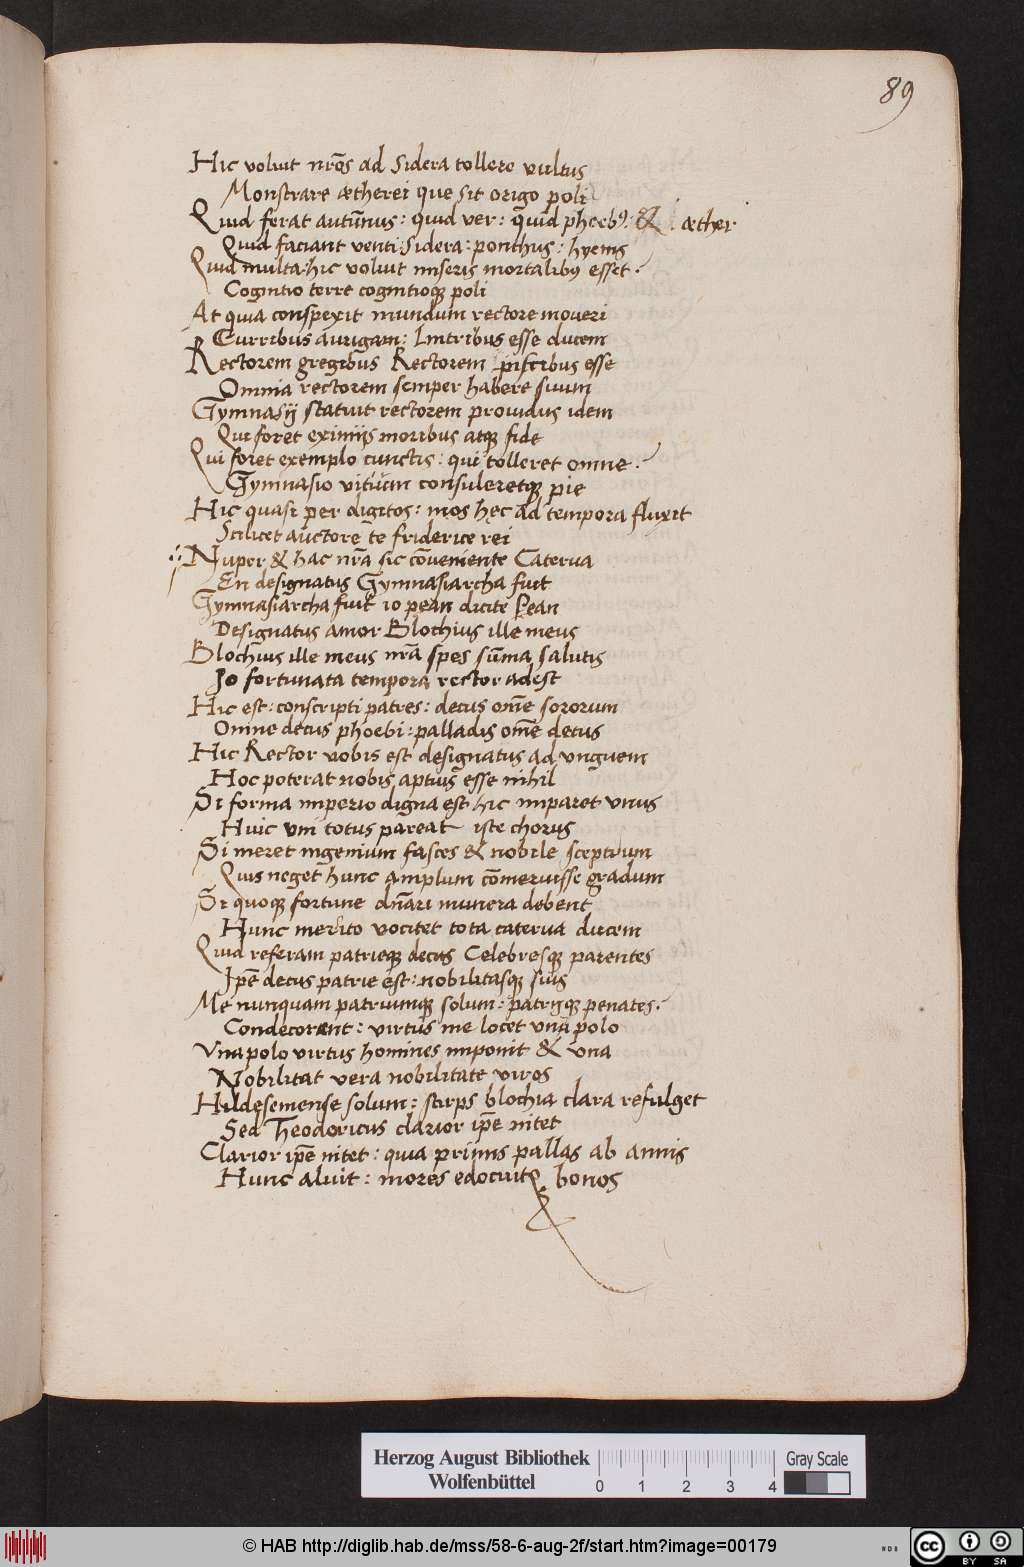 89
Hic voluit nr̄os ad sidera tollere vultus
Monstrare ætherei que sit origo poli
Quid ferat autūnus: quid ver: quid phoebꝰ: & æther
Quid faciant venti: sidera: ponthus: hyems
Quid multa: hic voluit miseris mortalibꝰ esset
Cognitio terre cognitioqꝫ poli
At quia conspexit mundum rectore moveri
Curribus aurigam: lintribus esse ducem
Rectorem gregibus Rectorem piscibus esse
Omnia rectorem semper habere suum
Gymnasij statuit rectorem providus idem
Qui foret eximijs moribus atqꝫ fide
Qui foret exemplo cunctis: qui tolleret omne
Gymnasio vitium consuleretqꝫ pie
Hic quasi per digitos: mos hęc ad tempora fluxit
Scilicet auctore te friderice rei
Nuper & hac nr̄a sic cōveniente Caterva
En designatus Gymnasiarcha fuit
Gymnasiarcha fuit io pean dicite Pean
Designatus amor Blochius ille meus
Blochius ille meus nr̄a spes sūma salutis
Jo fortunata tempora rector adest
Hic est: conscripti patres: decus om̄e sororum
Omne decus phoebi: palladis om̄e decus
Hic Rector vobis est designatus ad unguem
Hoc poterat nobis aptius esse nihil
Si forma imperio digna est hic imparet unus
Huic uni totus pareat iste chorus
Si meret ingenium fasces & nobile sceptrum
Quis neget hunc amplum cōmeruisse gradum
Si quoqꝫ fortune dn̄ari munera debent
Hunc merito vocitet tota caterva ducem
Quid referam patrieqꝫ decus Celebresqꝫ parentes
Ip̄e decus patrie est: nobilitasqꝫ suis
Me nunquam patriumqꝫ solum: patrijqꝫ penates
Condecorent: virtus me locet una polo
Una polo virtus homines imponit & una
Nobilitat vera nobilitate viros
Hildesemense solum: stirps blochia clara refulget
Sed Theodoricus clarior ip̄e nitet
Clarior ip̄e nitet: quia primis pallas ab annis
Hunc aluit: mores edocuitqꝫ bonos
Herzog August Bibliothek
Wolfenbüttel
0 1 2 3 4
Gray Scale
© HAB http://diglib.hab.de/mss/58-6-aug-2f/start.htm?image=00179
cc BY SA